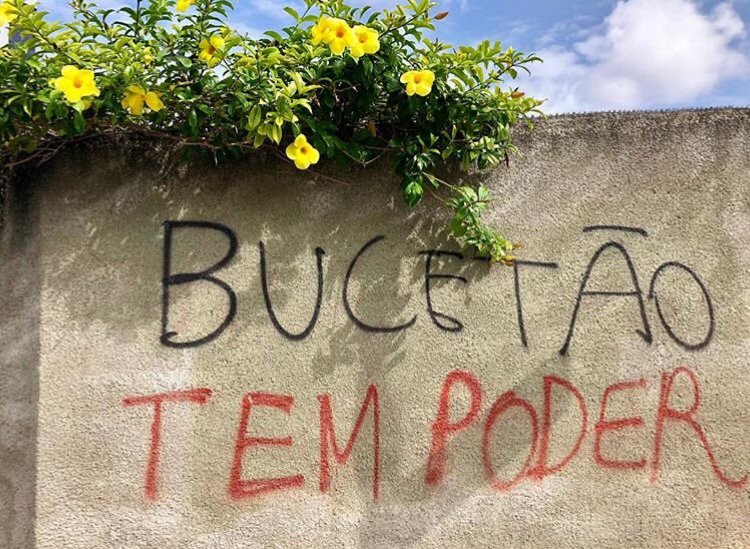 BUCETÃO
TEM PODER